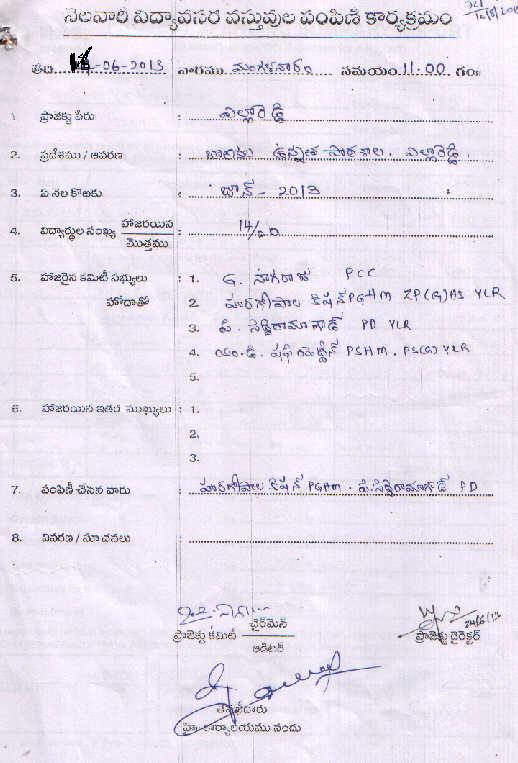 నెలవారీ విద్యావసర వస్తువుల పంపిణి కార్యక్రమం
తేది -06-2013 వారము మంగళవారం సమయం 11.00 గం॥
1. ప్రాజెక్టు పేరు : ఎల్లారెడ్డి
2. ప్రదేశము / ఆవరణ : బాలికల ఉన్నత పాఠశాల, ఎల్లారెడ్డి.
3. ఏ నెల కొఱకు : జూన్ - 2013
4. విద్యార్థుల సంఖ్య హాజరయిన / మొత్తము : 14/20
5. హాజరైన కమిటీ సభ్యులు : 1. G. నాగరాజు PCC
హోదాతో 2. హరగోపాల కిషన్ PGHM ZP(G)HS YLR
3. పి. సిద్దిరామాగౌడ్ PD YLR
4. యం.డి. PSHM, PS(G) YLR
5.
6. హాజరయిన ఇతర ముఖ్యులు : 1.
2.
3.
7. పంపిణీ చేసిన వారు : హరగోపాల కిషన్ PGHM. పి.సిద్దిరామాగౌడ్ PD
8. వివరణ / సూచనలు :
24/6/13
ప్రాజెక్టు కమిటీ చైర్‌మెన్ ప్రాజెక్టు డైరెక్టర్
ఆడిటర్
తహశీలుదారు
కార్యాలయము నందు